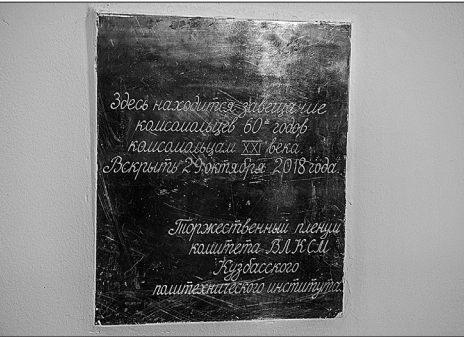 Здесь находится завещание
комсомольцев 60х годов
комсомольцам XXI века.
Вскрыть 29 октября 2018 года.
Торжественный пленум
комитета ВЛКСМ
Кузбасского
политехнического института.